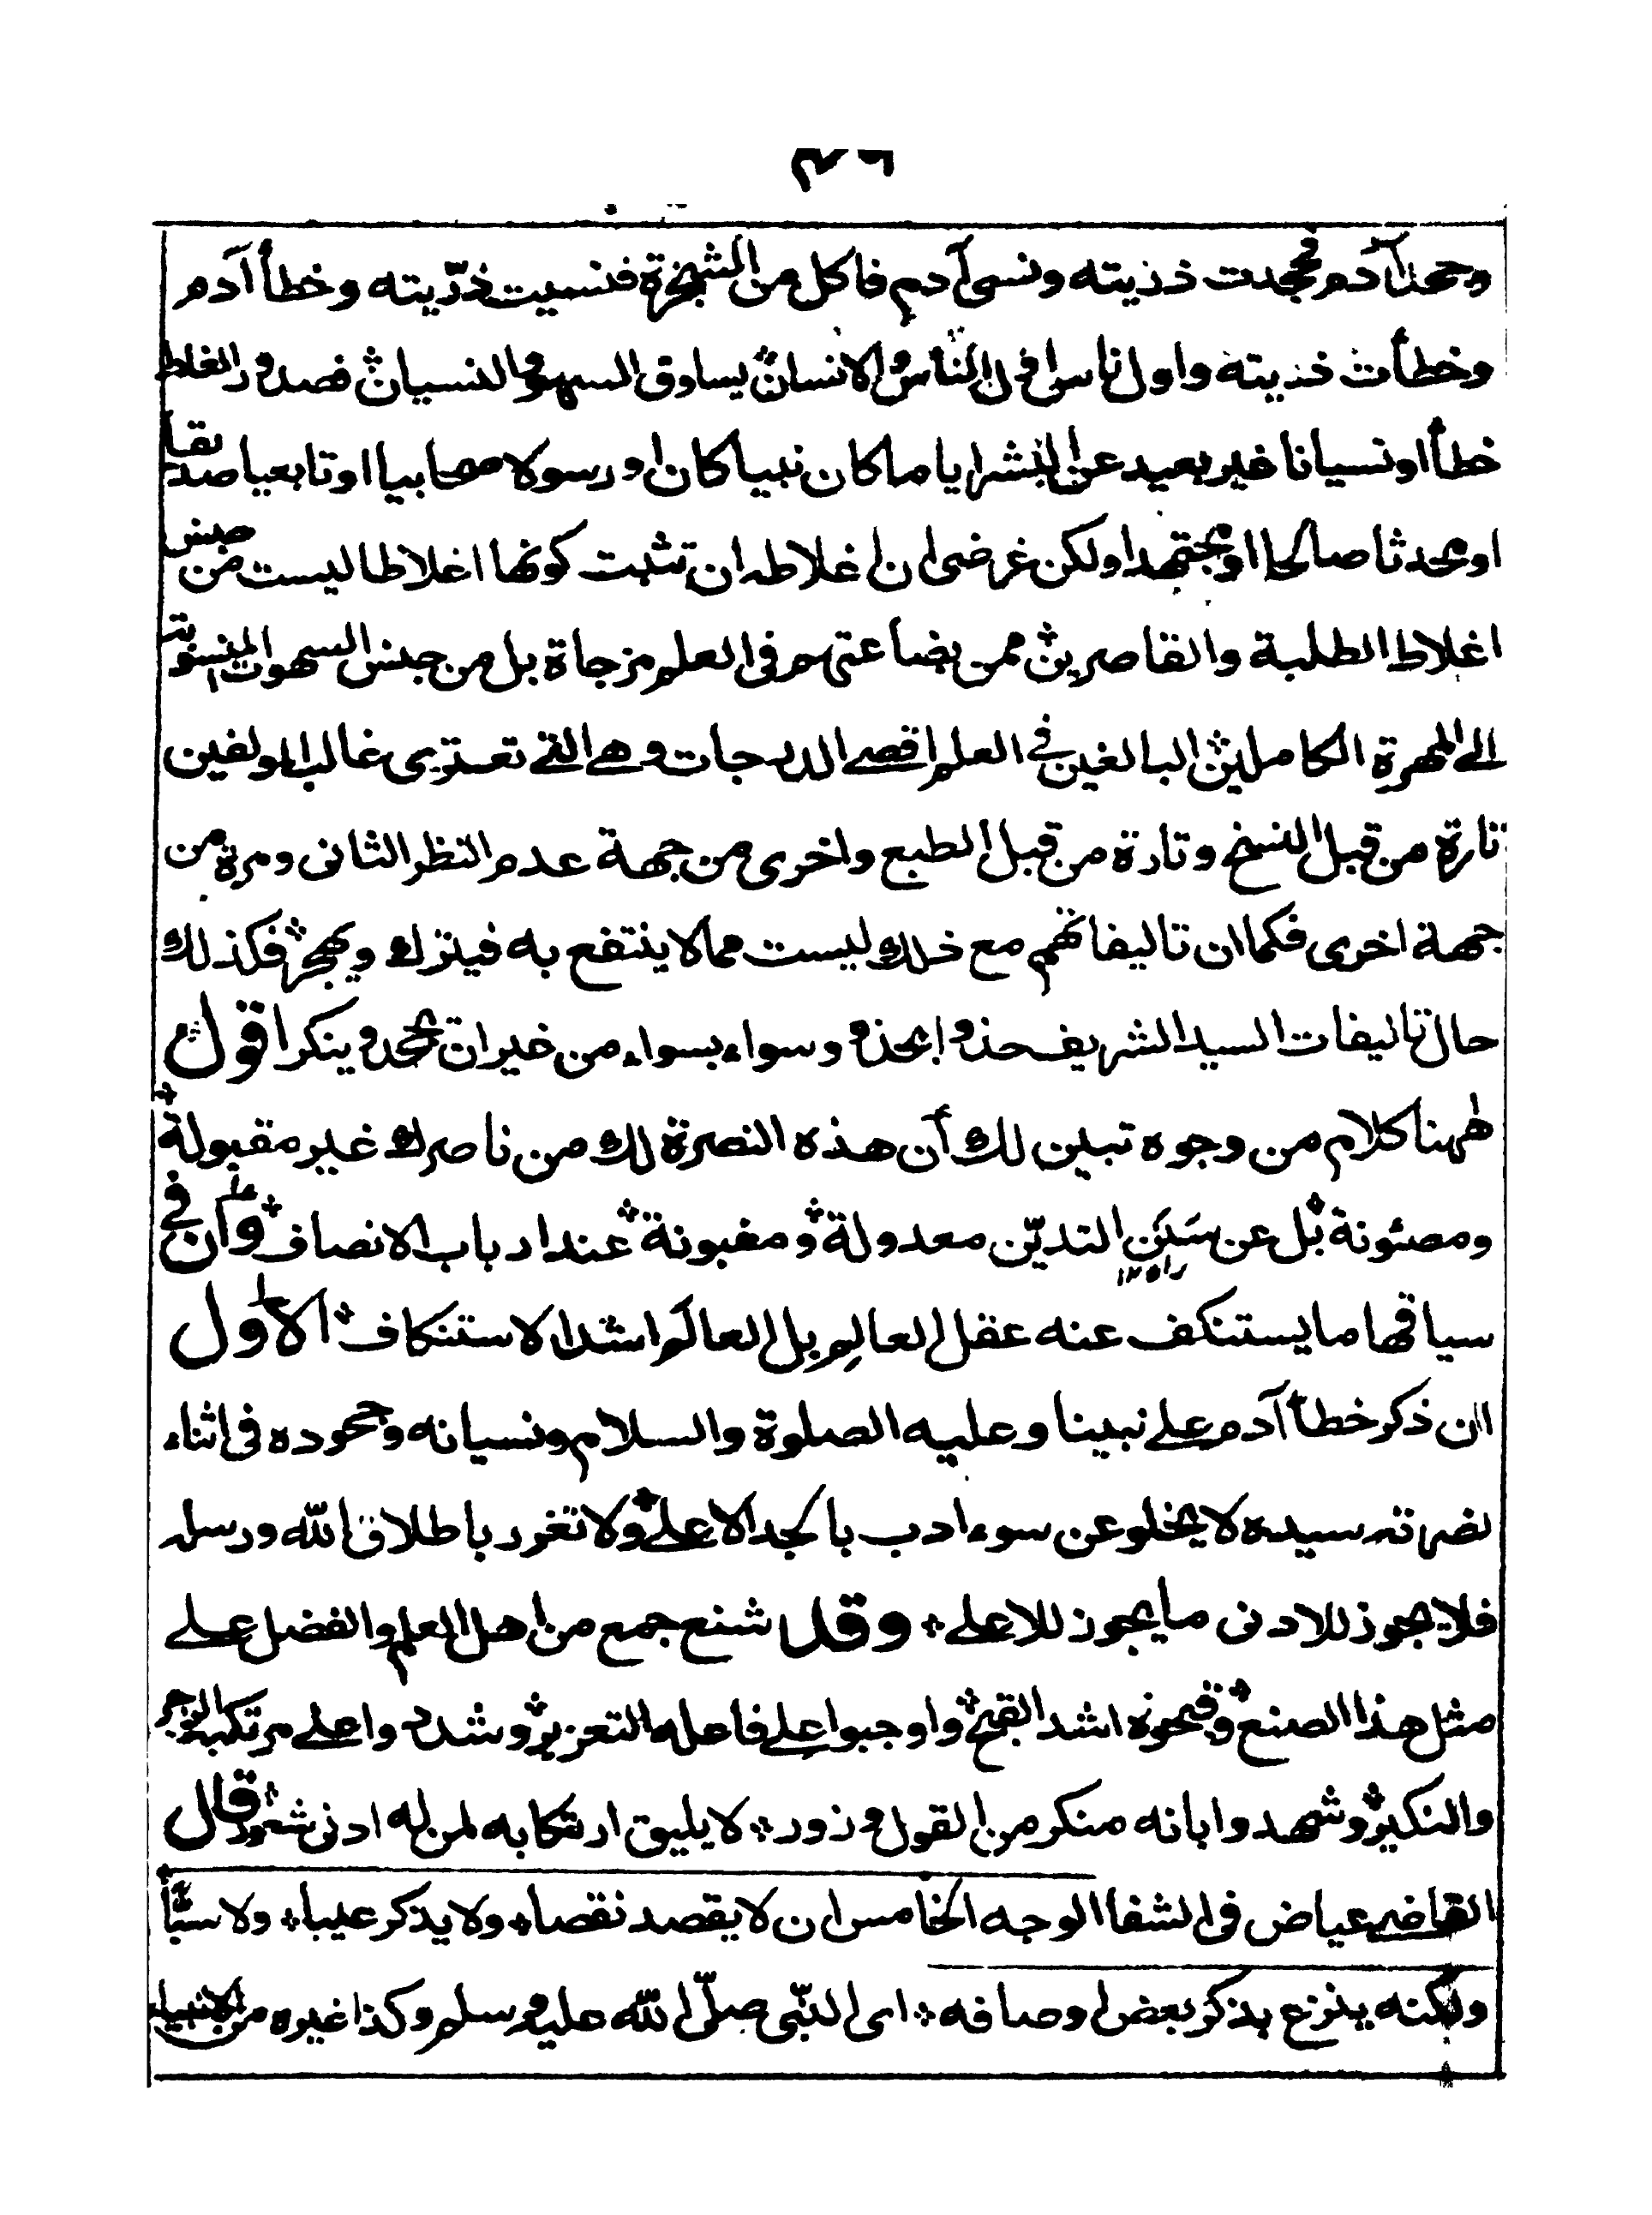 ٣٦
وجحد آدم فجحدت ذريته ونسى آدم فاكل من الشجرة فنسيت ذرّيته وخطأ آدم
وخطأت ذريته واول ناس اول الناس والانسان يساوق السهو والنسيان فصدور الغلط
خطأ او نسيانا غير بعيد عن البشر ايا ما كان نبيا كان او رسولا صحابيا او تابعيا صديقا
او محدثا صالحا او مجتهدا ولكن غرضى ان اغلاطه ان تثبت كونها اغلاطا ليست من جنس
اغلاط الطلبة والقاصرين ممن بضاعتهم فى العلم مزجاة بل من جنس السهوات المنسوبة
الى المهرة الكاملين البالغين فى العلم اقصى الدرجات وهى التى تعترى غالب المولفين
تارة من قبل النسخ وتارة من قبل الطبع واخرى من جهة عدم النظر الثانى ومرة من
جهة اخرى فكما ان تاليفاتهم مع ذلك ليست مما لا ينتفع به فيترك ويهجر فكذلك
حال تاليفات السيد الشريف حذوا بحذو وسواء بسواء من غير ان تجحد وينكر اقول
ههنا كلام من وجوه تبين لك أن هذه النصرة لك من ناصرك غير مقبولة
ومصئونة بل عن سَنَن التديّن معدولة ومغبونة عند ارباب الانصاف وان فى
سياقها ما يستنكف عنه عقل العالِم بل العالَم اشد الاستنكاف الاول
ان ذكر خطأ آدم على نبينا وعليه الصلوة والسلام ونسيانه وجحوده فى اثناء
نصرته سيده لا يخلو عن سوء ادب بالجد الاعلى ولا تغرر باطلاق الله ورسله
فلا يجوز للادنى ما يجوز للاعلى وقد شنع جمع من اهل العلم والفضل على
مثل هذا الصنع وقبحوه اشد القبح واوجبوا على فاعله التعزير وشددوا على مرتكبه الزجر
والنكير وشهدوا بانه منكر من القول وزور لا يليق ارتكابه لمن له ادنى شعور قال
القاضى عياض فى الشفا الوجه الخامس ان لا يقصد نقصا ولا يذكر عيبا ولا سبّا
ولكنه ينزع بذكر بعض اوصافه اى النبّى صلّى الله عليه وسلم وكذا غيره من الانبياء